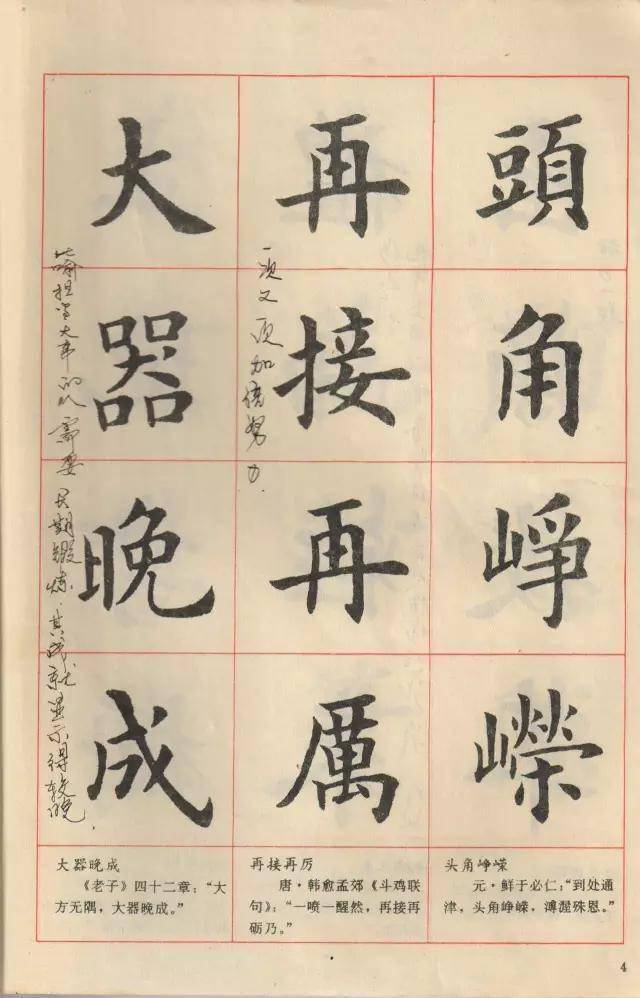 頭角崢嶸
再接再厲
大器晚成
一次又一次加倍努力.
比喻担当大事的人需要长期锻炼.其成就显示得较晚.
大器晚成
《老子》四十二章：“大
方无隅，大器晚成。”
再接再厉
唐·韩愈孟郊《斗鸡联
句》：“一喷一醒然，再接再
砺乃。”
头角峥嵘
元·鲜于必仁：“到处通
津，头角峥嵘，溥渥殊恩。”
4